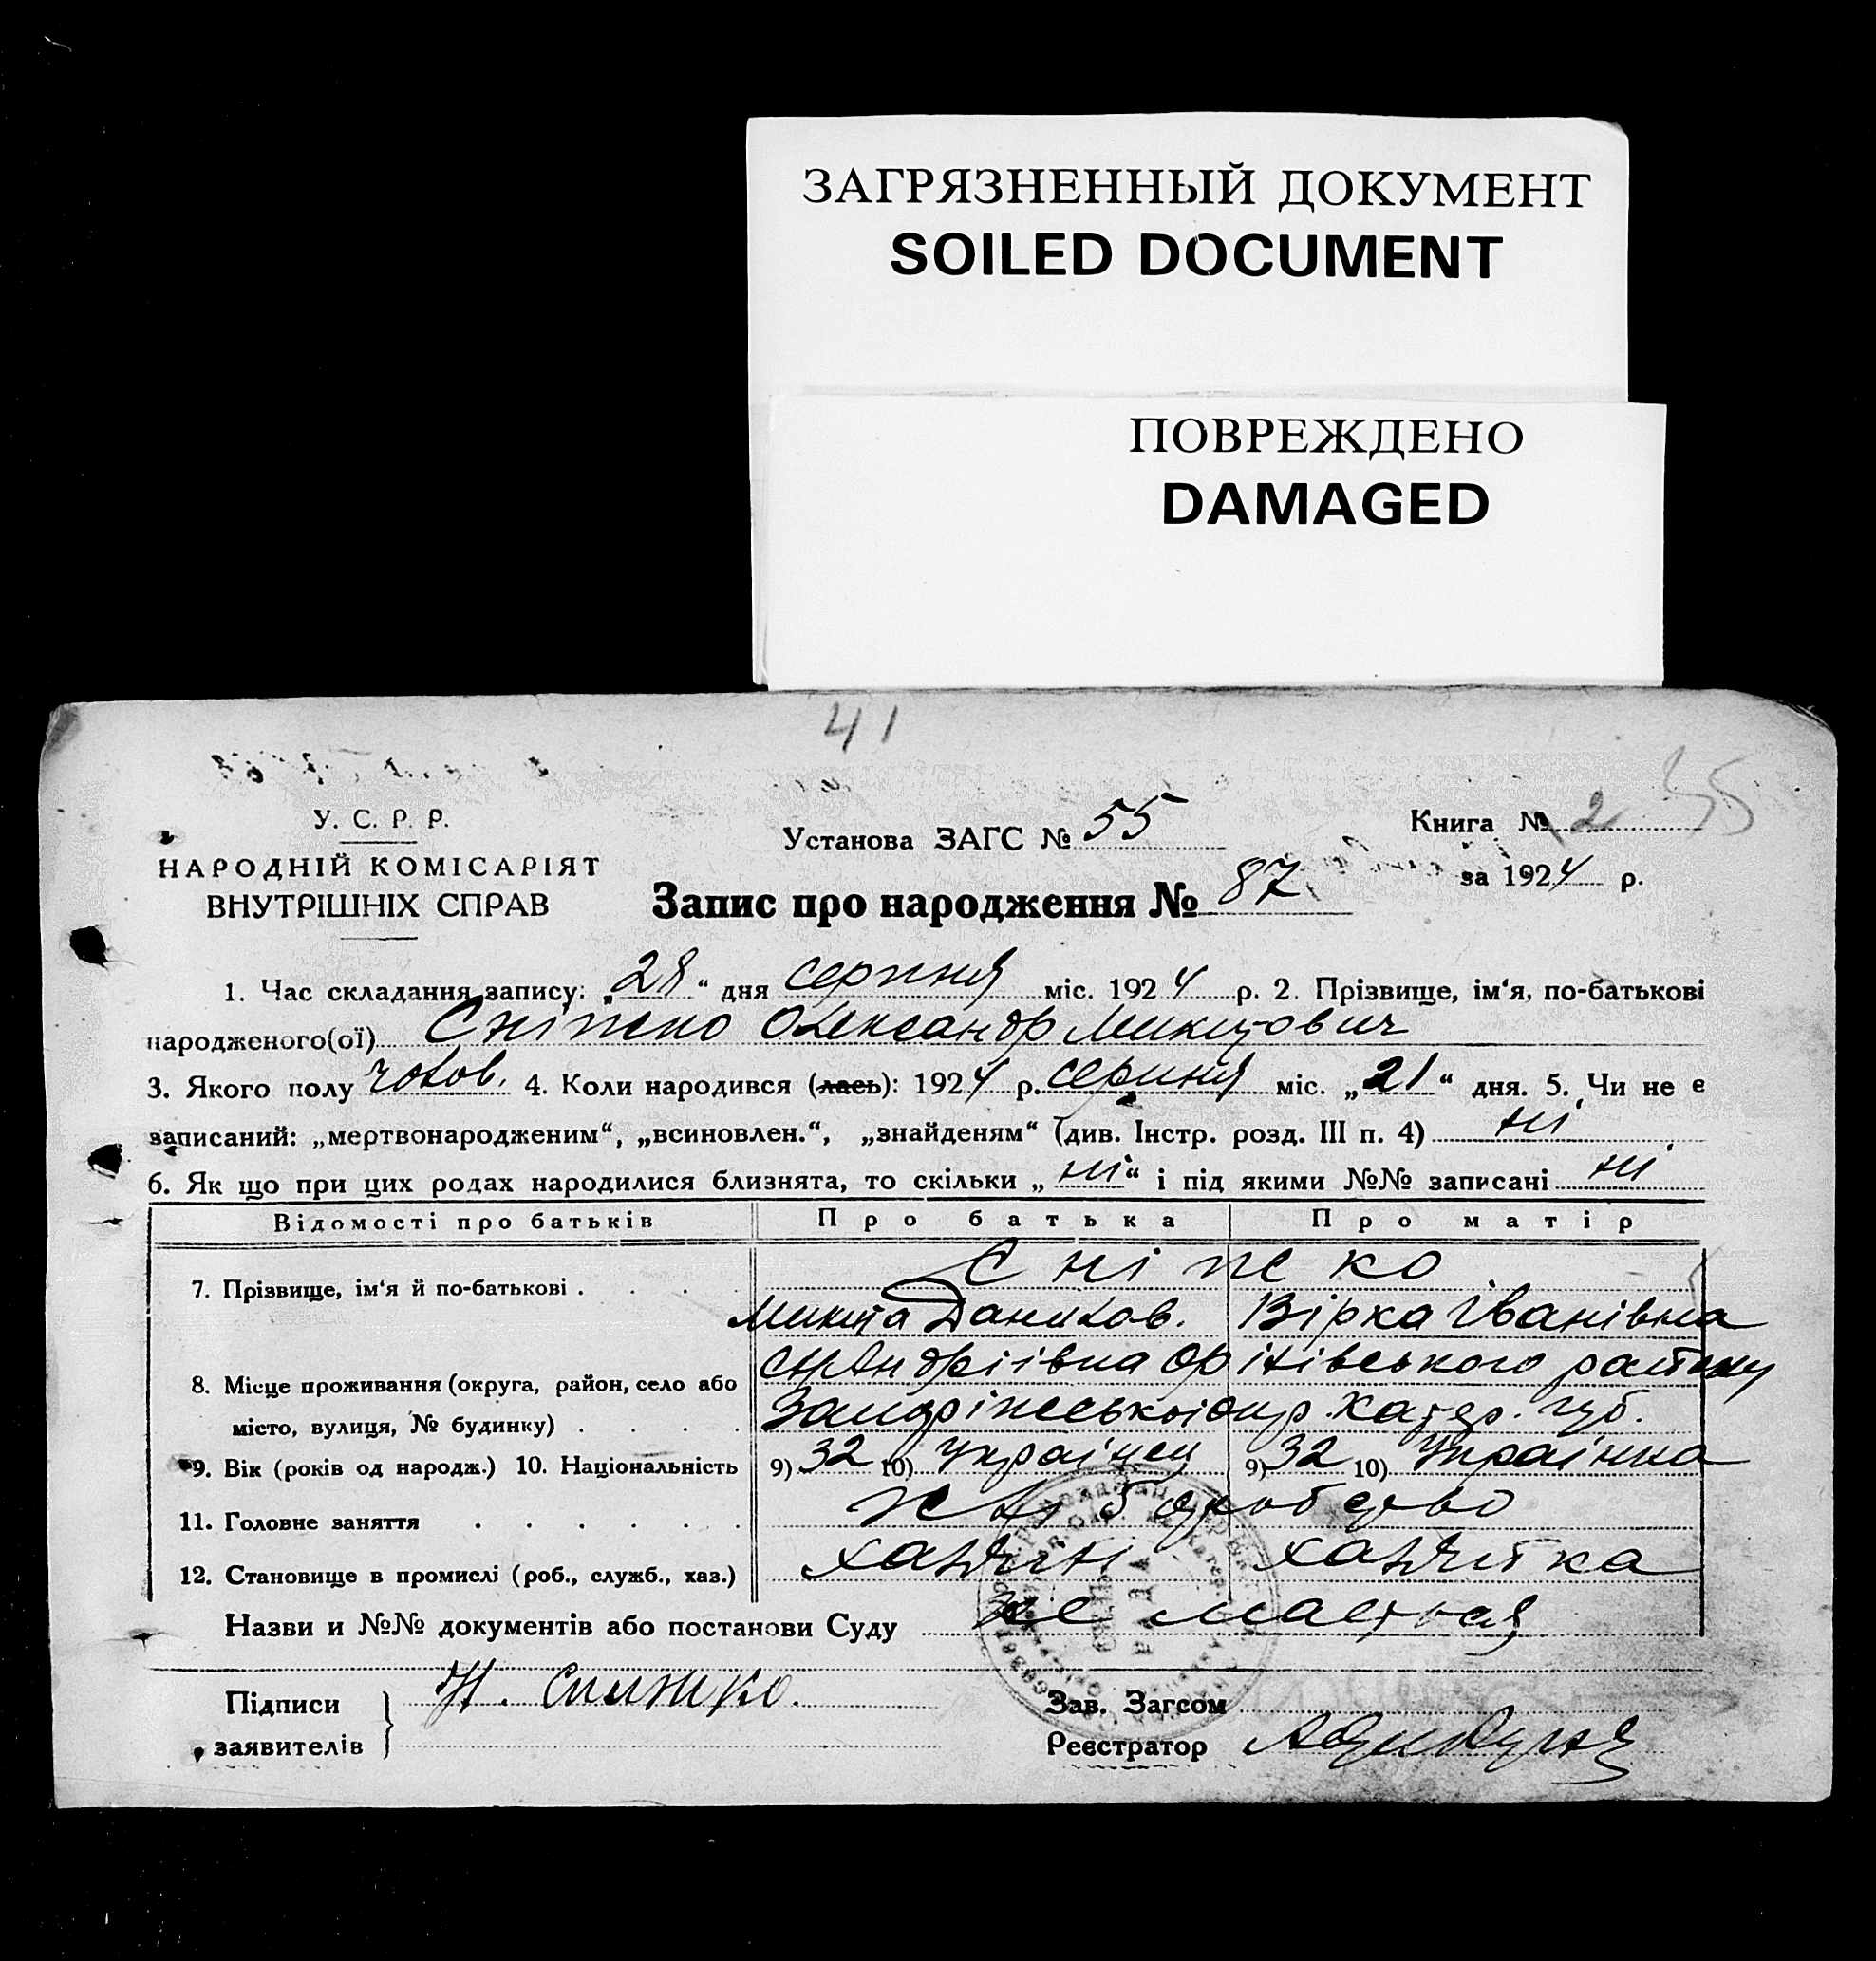 ЗАГРЯЗНЕННЫЙ ДОКУМЕНТ
SOILED DOCUMENT
ПОВРЕЖДЕНО
DAMAGED
41
У. С. Р. Р.
НАРОДНІЙ КОМІСАРІЯТ
ВНУТРІШНІХ СПРАВ
Установа ЗАГС № 55
Книга № 2
за 1924 р.
Запис про народження № 87
1. Час складання запису: „28“ дня серпня міс. 1924 р. 2. Прізвище, ім‘я, по-батькові
народженого(ої) Сніпко Олександр Микитович
3. Якого полу чолов. 4. Коли народився (лась): 1924 р. серпня міс. „21“ дня. 5. Чи не є
записаний: „мертвонародженим“, „всиновлен.“, „знайденям“ (див. Інстр. розд. III п. 4) ні
6. Як що при цих родах народилися близнята, то скільки „ні“ і під якими №№ записані ні
Відомості про батьків Про батька Про матір
7. Прізвище, ім‘я й по-батькові
Микита Данилов. Вірка Іванівна
8. Місце проживання (округа, район, село або
місто, вулиця, № будинку)
с Андріівка Оріхівського району
окр. Катер. губ.
9. Вік (років од народж.) 10. Національність 9) 32 10) Украінец 9) 32 10) Украінка
11. Головне заняття хлібороботво
12. Становище в промислі (роб., служб., хаз.) хазяін хазяйка
Назви и №№ документів або постанови Суду не мається
Підписи
заявителів
Н.
Зав. Загсом
Реєстратор